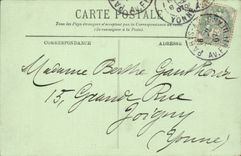 CARTE POSTALE
Tous les pays étrangers n'acceptent pas la Correspondance au recto
(Se renseigner à la Poste)
CORRESPONDANCE
ADRESSE
YONNE
PARIS
Madame Berthe
15, Grande Rue
Joigny
(Yonne)